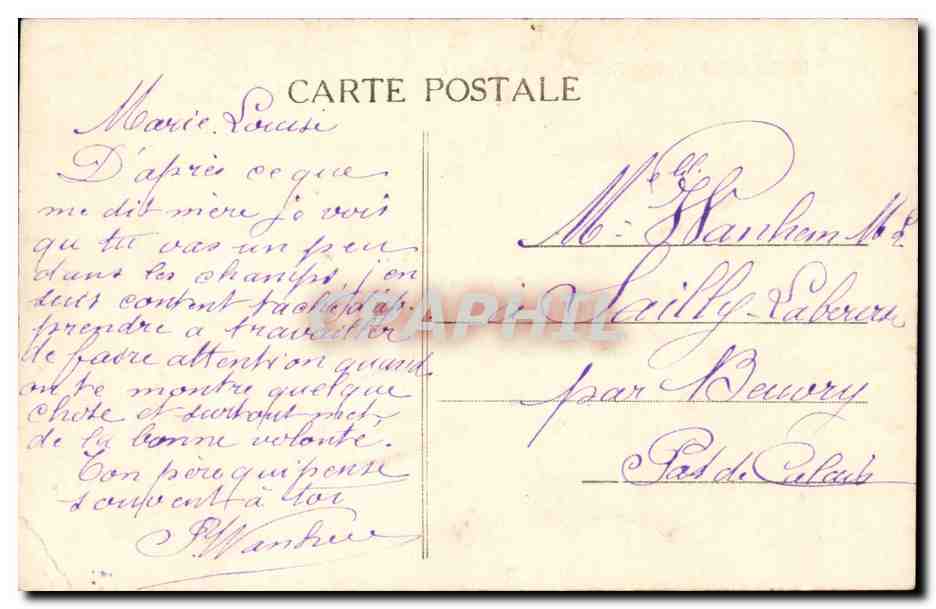 CARTE POSTALE
Marie Louise
D'après ce que
me dit mère je vois
que tu vas un peu
dans les champs, j'en
suis content tache d'ap
prendre a travailler
de faire attention quand
on te montre quelque
chose et surtout met
de la bonne volonté.
Ton père qui pense
souvent à toi
Melle Wanhem M L
à Sailly-Labourse
par Beuvry
Pas de Calais
CPAPHIL